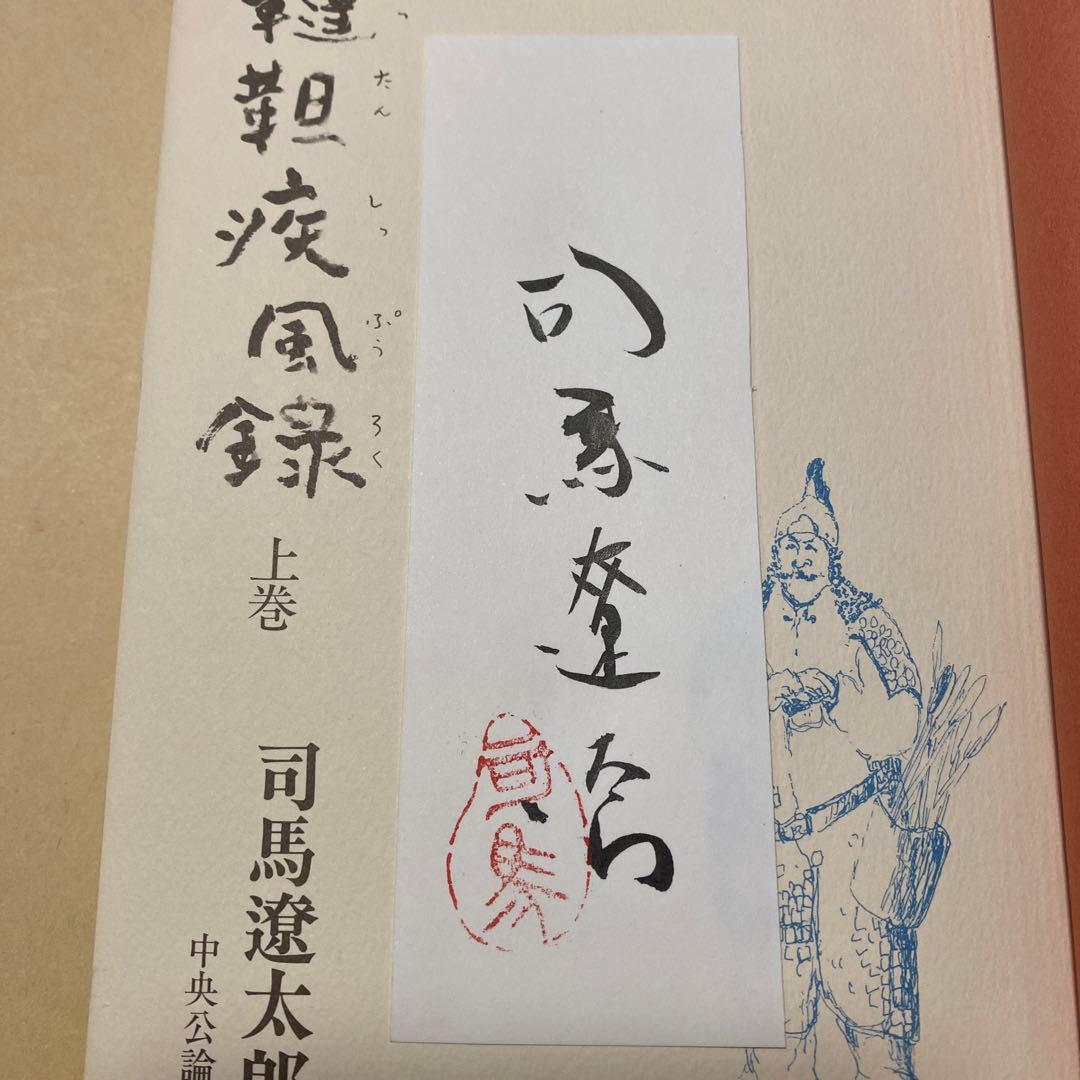 司馬遼太郎
司馬
ったん しっ ぷう ろく
韃靼疾風録
上巻
司馬遼太郎
中央公論